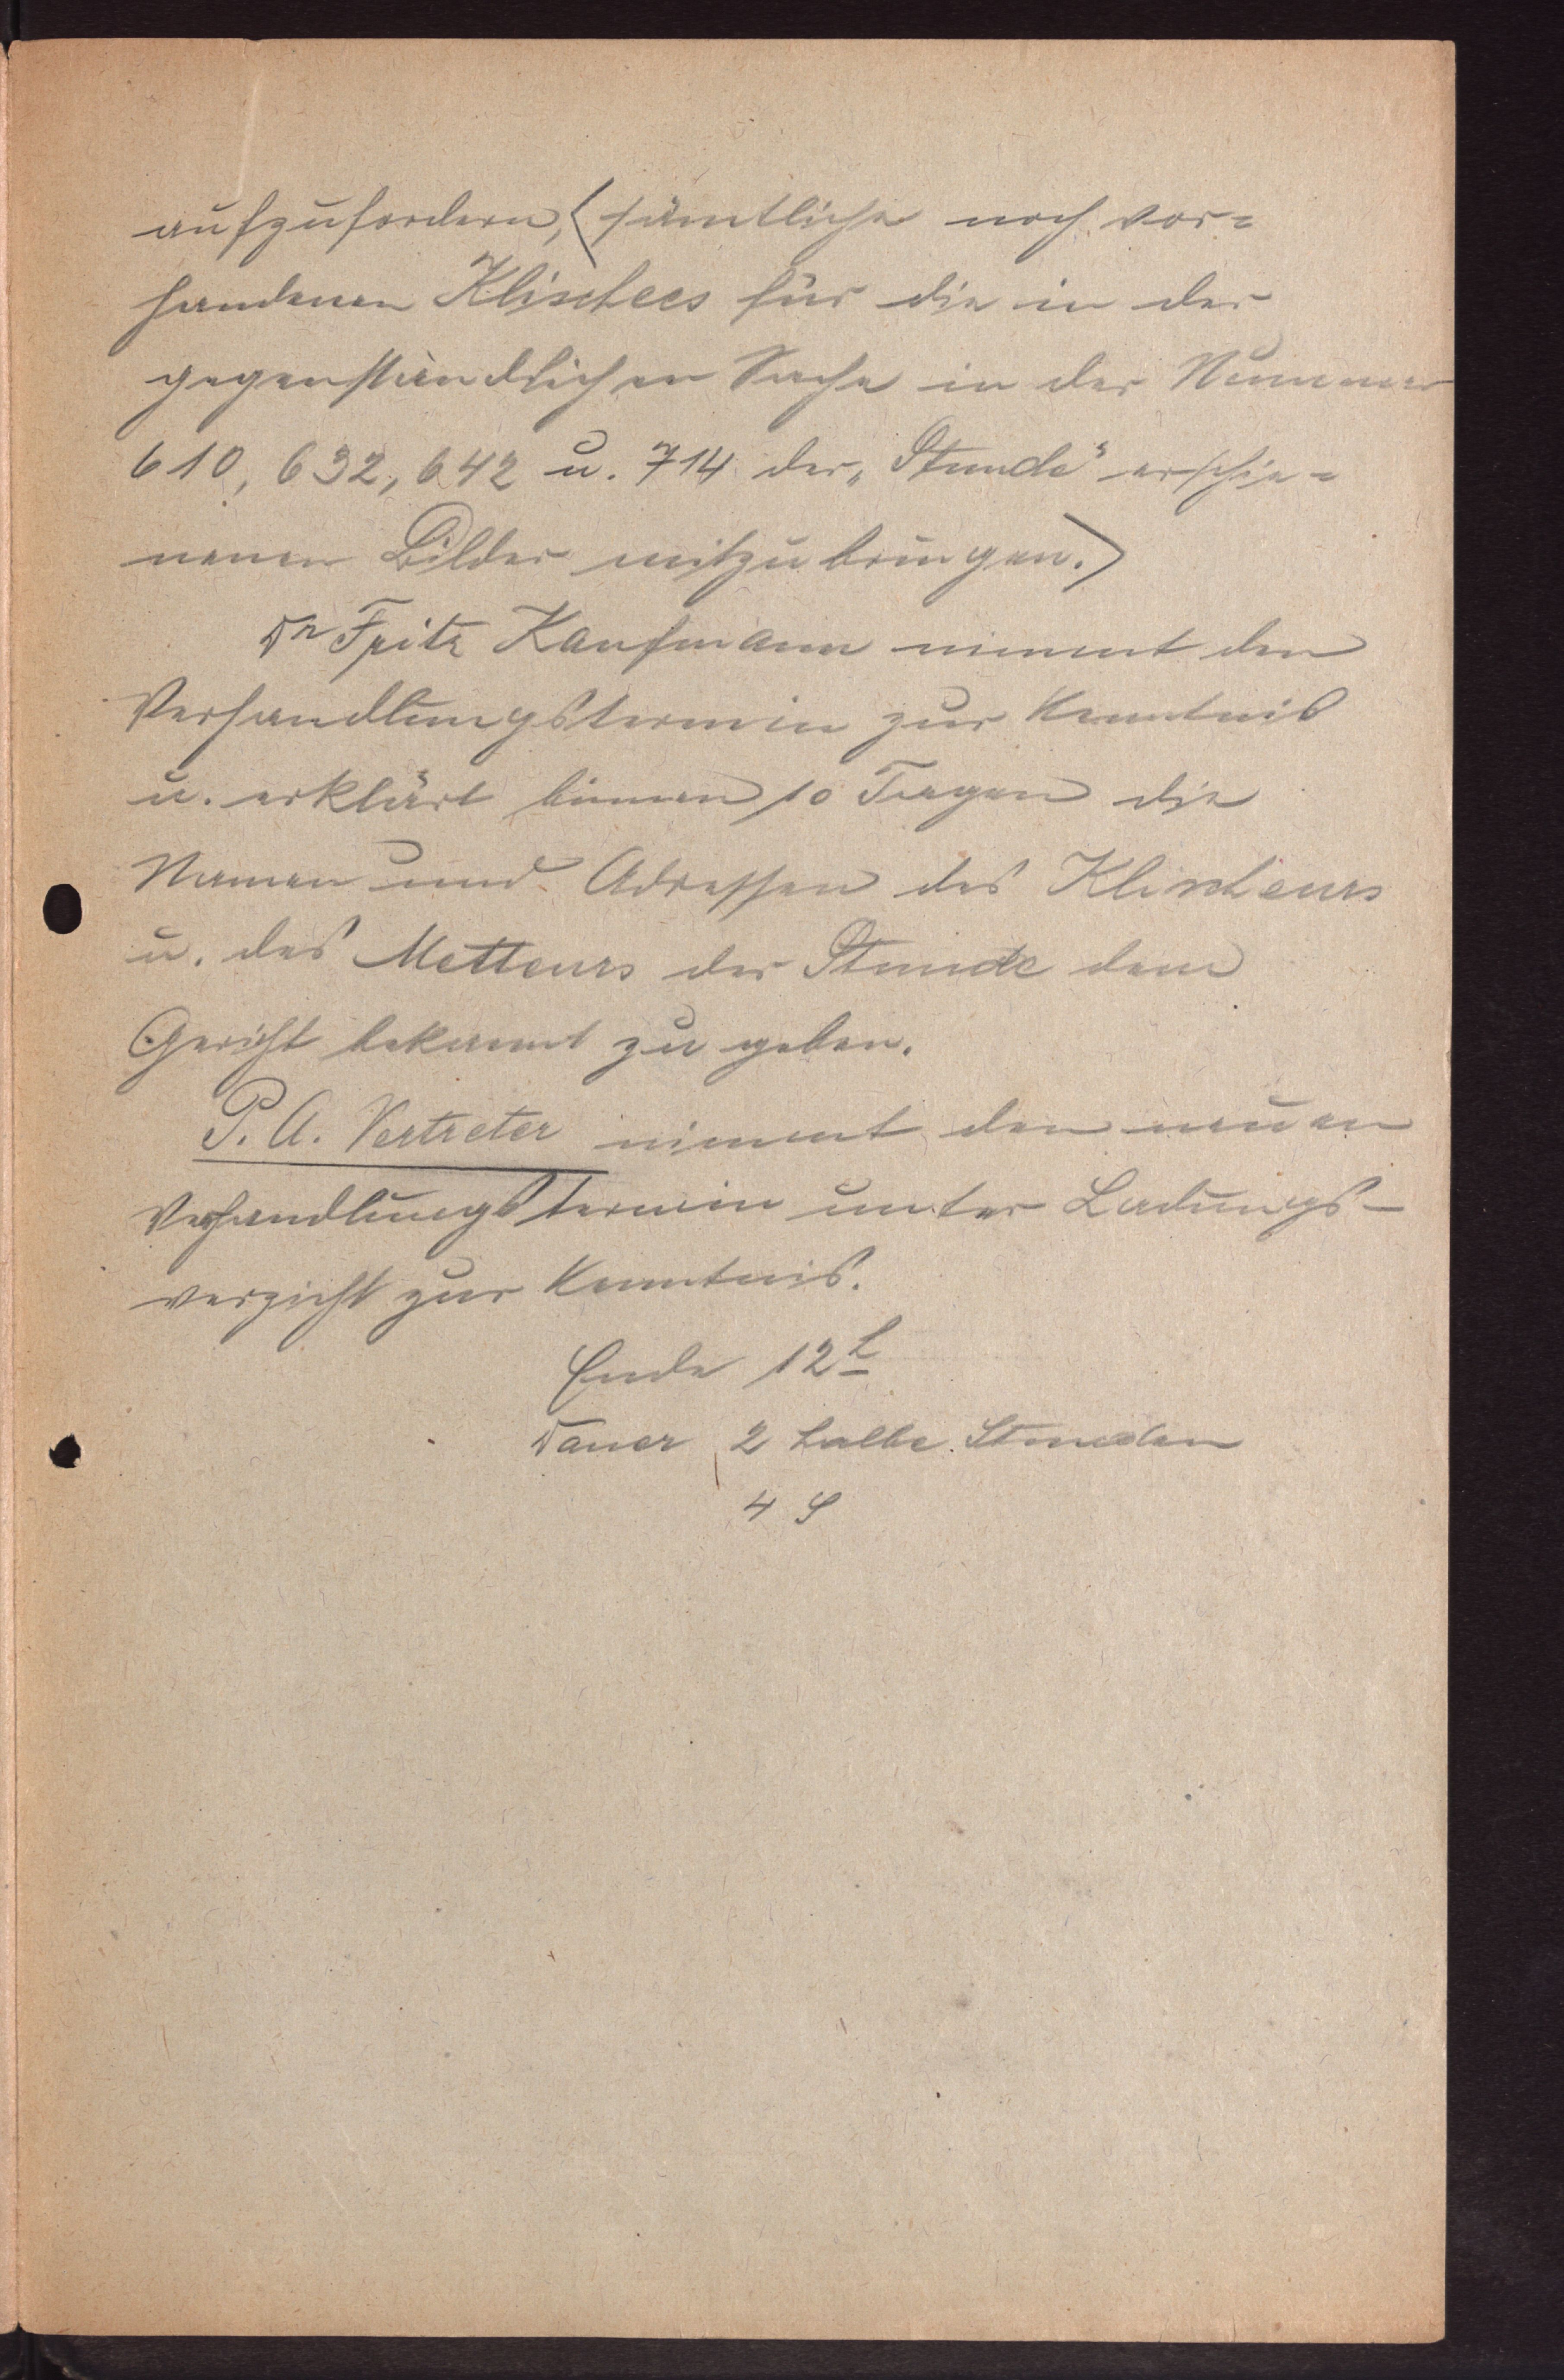 aufzufordern, <sämtliche noch vor=
handenen Klischees für die in der
gegenständlichen Sache in der Nummer
610, 632, 642 u. 714 der „Stunde" erschie=
nenen Bilder mitzubringen.>
Dr Fritz Kaufmann nimmt den
Verhandlungstermin zur Kenntnis
u. erklärt binnen 10 Tagen die
Namen und Adressen des Klischeurs
u. des Metteurs der Stunde dem
Gericht bekannt zu geben.
P. A. Vertreter nimmt den neuen
Verhandlungstermin unter Ladungs-
verzicht zur Kenntnis.
Ende 12h
Dauer 2 halbe Stunden
4 S